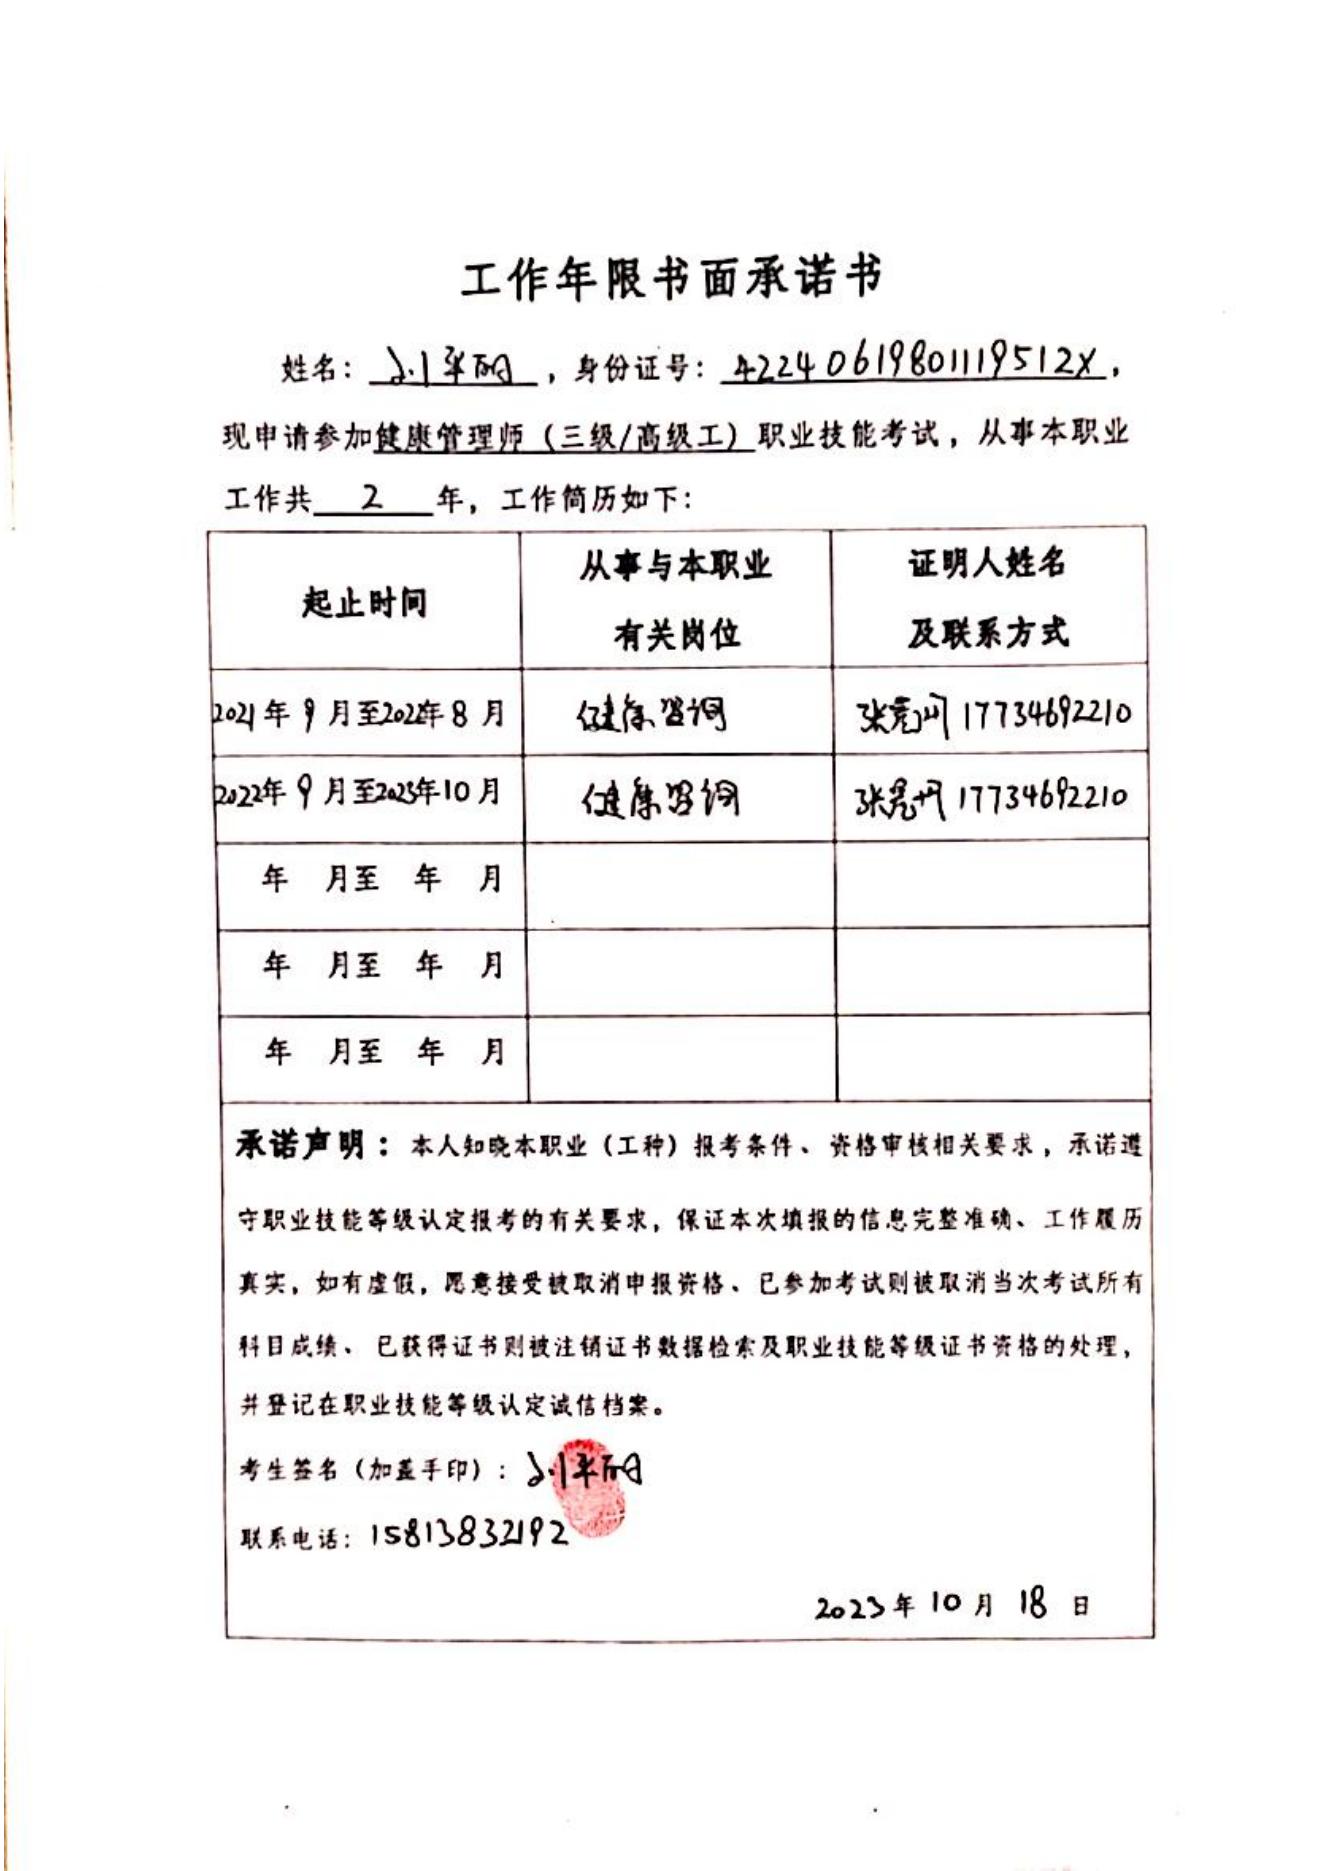 工作年限书面承诺书
姓名：刘军丽，身份证号：42240619801119512X，
现申请参加健康管理师（三级/高级工）职业技能考试，从事本职业
工作共 2 年，工作简历如下：
起止时间 从事与本职业有关岗位 证明人姓名及联系方式
2021年 9 月至2022年 8 月 健康咨询 张 17734692210
2022年 9 月至2023年10月 健康咨询 张 17734692210
年 月至 年 月
年 月至 年 月
年 月至 年 月
承诺声明：本人知晓本职业（工种）报考条件、资格审核相关要求，承诺遵
守职业技能等级认定报考的有关要求，保证本次填报的信息完整准确、工作履历
真实，如有虚假，愿意接受被取消申报资格、已参加考试则被取消当次考试所有
科目成绩、已获得证书则被注销证书数据检索及职业技能等级证书资格的处理，
并登记在职业技能等级认定诚信档案。
考生签名（加盖手印）：刘军丽
联系电话：15813832192
2023年 10 月 18 日